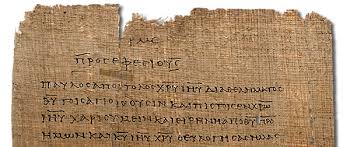 ΠΡΟϹ ΕΦΕϹΙΟΥϹ
ΠΑΥΛΟϹ ΑΠΟϹΤΟΛΟϹ ΧΡΥ ΙΗΥ ΔΙΑ ΘΕΛΗΜΑΤΟϹ
ΘΥ ΤΟΙϹ ΑΓΙΟΙϹ ΟΥϹΙΝ ΚΑΙ ΠΙϹΤΟΙϹ ΕΝ ΧΡΩ
ΙΗΥ ΧΑΡΙϹ ΥΜΕΙΝ ΚΑΙ ΕΙΡΗΝΗ ΑΠΟ ΘΥ ΠΡΟϹ
ΗΜΩΝ ΚΑΙ ΚΥ ΙΗΥ ΧΡΥ Ο ΕΥΛΟΓΗϹΑϹ ΗΜΑϹ